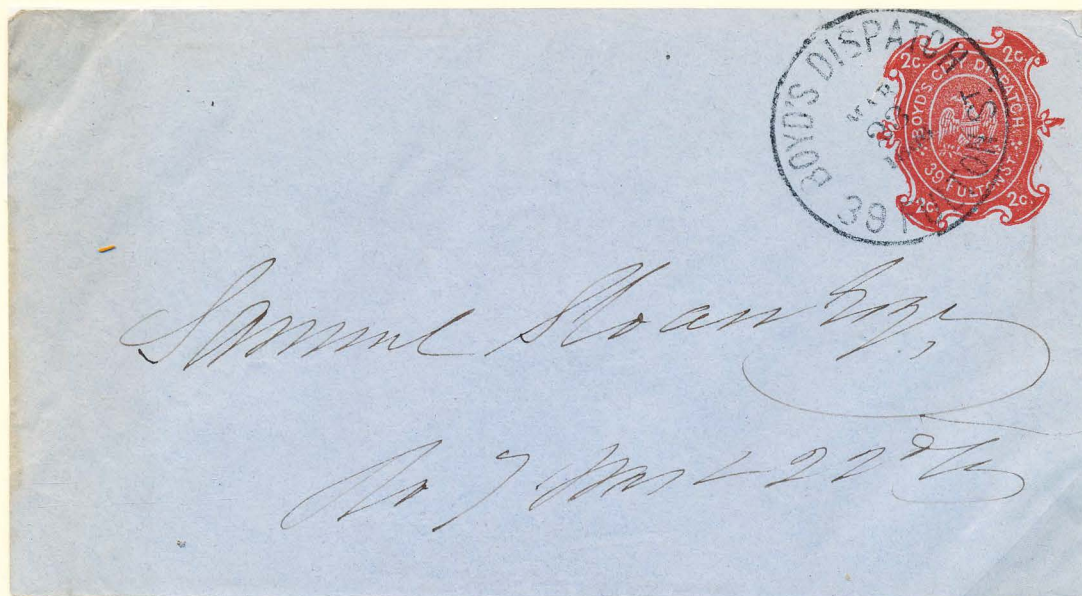 BOYD'S DISPATCH
39 FULTON ST.
MAR
22
2c. 2c.
BOYD'S CITY DISPATCH
39 FULTON ST.
2c. 2c.
Samuel Sloan Esqr,
No 7 West 22d St